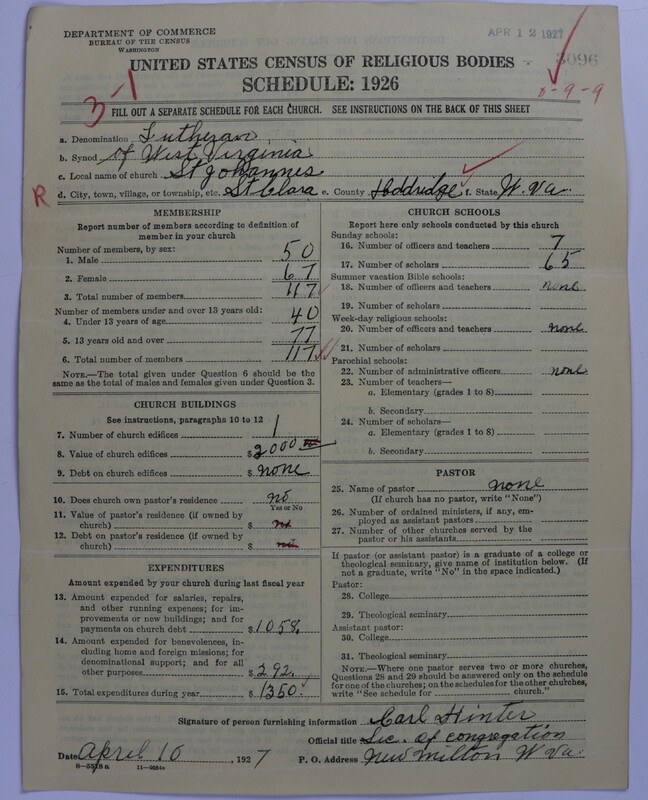 DEPARTMENT OF COMMERCE
BUREAU OF THE CENSUS
WASHINGTON
APR 12 1927
3096
UNITED STATES CENSUS OF RELIGIOUS BODIES
SCHEDULE: 1926
3-1
8-9-9
FILL OUT A SEPARATE SCHEDULE FOR EACH CHURCH. SEE INSTRUCTIONS ON THE BACK OF THIS SHEET
a. Denomination Lutheran
b. Synod of West Virginia
c. Local name of church St Johannes
R
d. City, town, village, or township, etc. St Clara e. County Doddridge f. State W. Va.
MEMBERSHIP
Report number of members according to definition of member in your church
Number of members, by sex:
1. Male 50
2. Female 67
3. Total number of members 117
Number of members under and over 13 years old:
4. Under 13 years of age 40
5. 13 years old and over 77
6. Total number of members 117
NOTE.—The total given under Question 6 should be the same as the total of males and females given under Question 3.
CHURCH BUILDINGS
See instructions, paragraphs 10 to 12
7. Number of church edifices 1
8. Value of church edifices $2000
9. Debt on church edifices $ none
10. Does church own pastor's residence no
Yes or No
11. Value of pastor's residence (if owned by church) $ no
12. Debt on pastor's residence (if owned by church) $ no
EXPENDITURES
Amount expended by your church during last fiscal year
13. Amount expended for salaries, repairs, and other running expenses; for improvements or new buildings; and for payments on church debt $1058.
14. Amount expended for benevolences, including home and foreign missions; for denominational support; and for all other purposes $292.
15. Total expenditures during year $1350.
CHURCH SCHOOLS
Report here only schools conducted by this church
Sunday schools:
16. Number of officers and teachers 7
17. Number of scholars 65
Summer vacation Bible schools:
18. Number of officers and teachers none
19. Number of scholars
Week-day religious schools:
20. Number of officers and teachers none
21. Number of scholars
Parochial schools:
22. Number of administrative officers none
23. Number of teachers—
a. Elementary (grades 1 to 8)
b. Secondary
24. Number of scholars—
a. Elementary (grades 1 to 8)
b. Secondary
PASTOR
25. Name of pastor none
(If church has no pastor, write "None")
26. Number of ordained ministers, if any, employed as assistant pastors
27. Number of other churches served by the pastor or his assistants
If pastor (or assistant pastor) is a graduate of a college or theological seminary, give name of institution below. (If not a graduate, write "No" in the space indicated.)
Pastor:
28. College
29. Theological seminary
Assistant pastor:
30. College
31. Theological seminary
NOTE.—Where one pastor serves two or more churches, Questions 28 and 29 should be answered only on the schedule for one of the churches; on the schedules for the other churches, write "See schedule for church."
Signature of person furnishing information Carl Hinter
Official title Sec. of congregation
Date April 10, 1927 P. O. Address New Milton W Va.
8-5518a 11-9984a